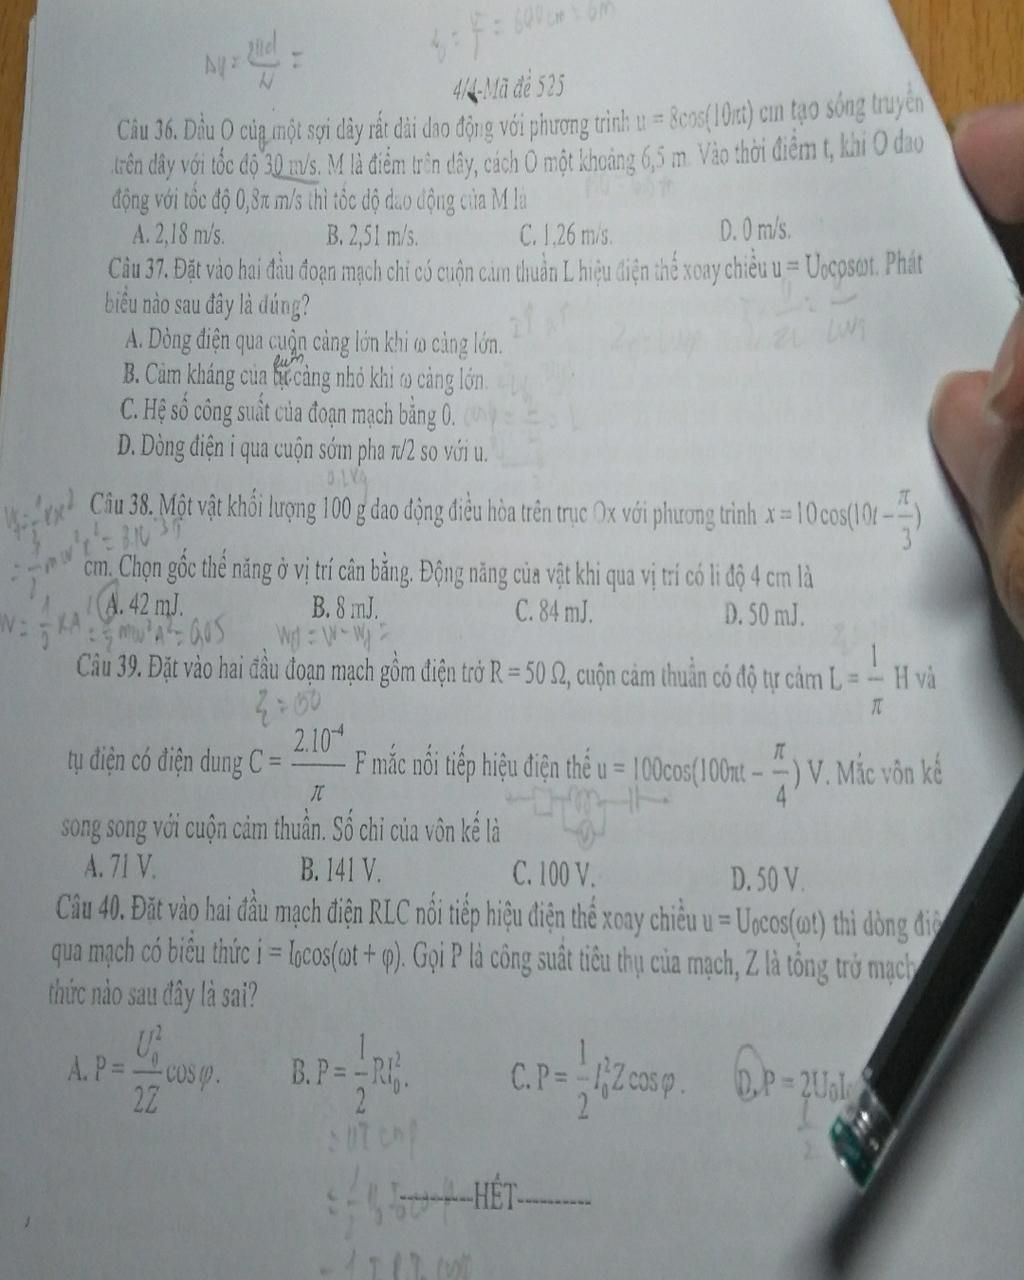 4/4-Mã đề 525
Câu 36. Đầu O của một sợi dây rất dài dao động với phương trình u = 8cos(10πt) cm tạo sóng truyền
trên dây với tốc độ 30 m/s. M là điểm trên dây, cách O một khoảng 6,5 m. Vào thời điểm t, khi O dao
động với tốc độ 0,8π m/s thì tốc độ dao động của M là
A. 2,18 m/s. B. 2,51 m/s. C. 1,26 m/s. D. 0 m/s.
Câu 37. Đặt vào hai đầu đoạn mạch chỉ có cuộn cảm thuần L hiệu điện thế xoay chiều u = U₀cosωt. Phát
biểu nào sau đây là đúng?
A. Dòng điện qua cuộn càng lớn khi ω càng lớn.
B. Cảm kháng của tụ càng nhỏ khi ω càng lớn.
C. Hệ số công suất của đoạn mạch bằng 0.
D. Dòng điện i qua cuộn sớm pha π/2 so với u.
0,1kg
Câu 38. Một vật khối lượng 100 g dao động điều hòa trên trục Ox với phương trình x = 10cos(10t − π/3)
cm. Chọn gốc thế năng ở vị trí cân bằng. Động năng của vật khi qua vị trí có li độ 4 cm là
A. 42 mJ. B. 8 mJ. C. 84 mJ. D. 50 mJ.
Câu 39. Đặt vào hai đầu đoạn mạch gồm điện trở R = 50 Ω, cuộn cảm thuần có độ tự cảm L = 1/π H và
tụ điện có điện dung C = 2.10⁻⁴/π F mắc nối tiếp hiệu điện thế u = 100cos(100πt − π/4) V. Mắc vôn kế
song song với cuộn cảm thuần. Số chỉ của vôn kế là
A. 71 V. B. 141 V. C. 100 V. D. 50 V.
Câu 40. Đặt vào hai đầu mạch điện RLC nối tiếp hiệu điện thế xoay chiều u = U₀cos(ωt) thì dòng điệ
qua mạch có biểu thức i = I₀cos(ωt + φ). Gọi P là công suất tiêu thụ của mạch, Z là tổng trở mạch
thức nào sau đây là sai?
A. P = U₀²/2Z cosφ. B. P = 1/2 RI₀². C. P = 1/2 I₀²Zcosφ. D. P = 2U₀I₀
----------HẾT----------